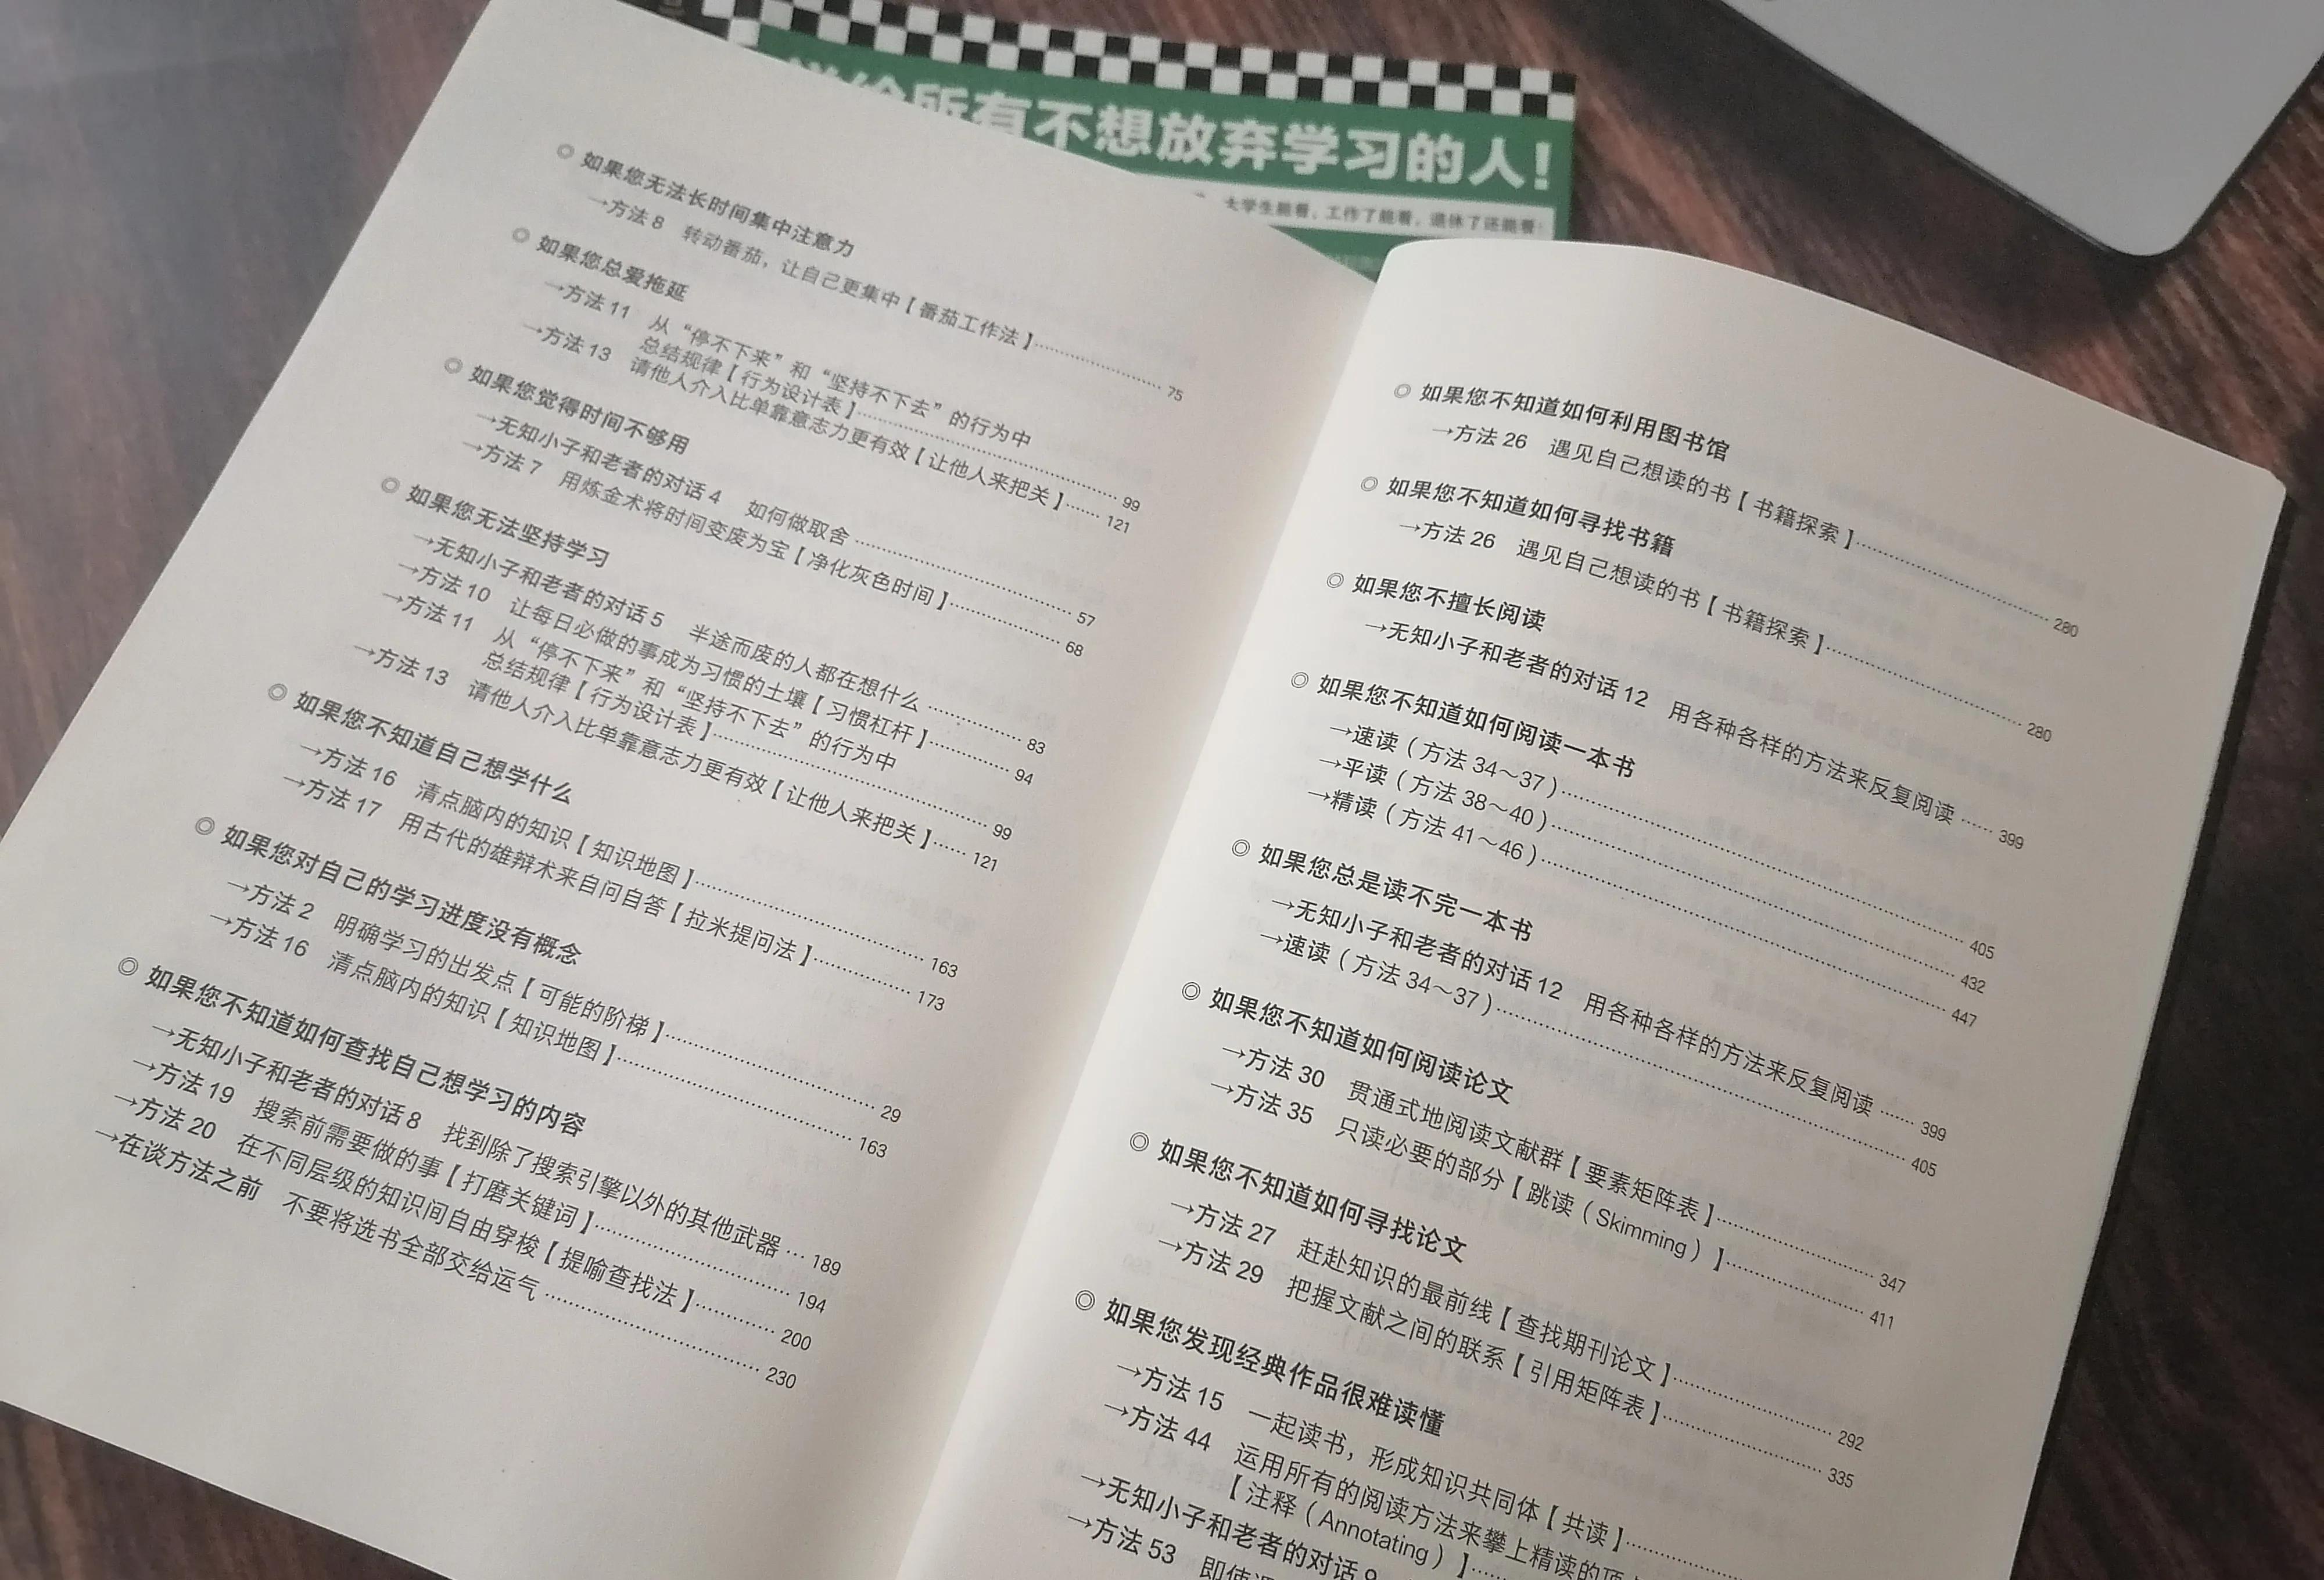 所有不想放弃学习的人!
大学生能看，工作了能看，退休了还能看!
◎ 如果您无法长时间集中注意力
→方法 8 转动番茄，让自己更集中【番茄工作法】 75
◎ 如果您总爱拖延
→方法 11 从“停不下来”和“坚持不下去”的行为中
总结规律【行为设计表】 99
→方法 13 请他人介入比单靠意志力更有效【让他人来把关】 121
◎ 如果您觉得时间不够用
→无知小子和老者的对话 4 如何做取舍 57
→方法 7 用炼金术将时间变废为宝【净化灰色时间】 68
◎ 如果您无法坚持学习
→无知小子和老者的对话 5 半途而废的人都在想什么 83
→方法 10 让每日必做的事成为习惯的土壤【习惯杠杆】 94
→方法 11 从“停不下来”和“坚持不下去”的行为中
总结规律【行为设计表】 99
→方法 13 请他人介入比单靠意志力更有效【让他人来把关】 121
◎ 如果您不知道自己想学什么
→方法 16 清点脑内的知识【知识地图】 163
→方法 17 用古代的雄辩术来自问自答【拉米提问法】 173
◎ 如果您对自己的学习进度没有概念
→方法 2 明确学习的出发点【可能的阶梯】 29
→方法 16 清点脑内的知识【知识地图】 163
◎ 如果您不知道如何查找自己想学习的内容
→无知小子和老者的对话 8 找到除了搜索引擎以外的其他武器 189
→方法 19 搜索前需要做的事【打磨关键词】 194
→方法 20 在不同层级的知识间自由穿梭【提喻查找法】 200
→在谈方法之前 不要将选书全部交给运气 230
◎ 如果您不知道如何利用图书馆
→方法 26 遇见自己想读的书【书籍探索】 280
◎ 如果您不知道如何寻找书籍
→方法 26 遇见自己想读的书【书籍探索】 280
◎ 如果您不擅长阅读
→无知小子和老者的对话 12 用各种各样的方法来反复阅读 399
◎ 如果您不知道如何阅读一本书
→速读（方法 34～37） 405
→平读（方法 38～40） 432
→精读（方法 41～46） 447
◎ 如果您总是读不完一本书
→无知小子和老者的对话 12 用各种各样的方法来反复阅读 399
→速读（方法 34～37） 405
◎ 如果您不知道如何阅读论文
→方法 30 贯通式地阅读文献群【要素矩阵表】 347
→方法 35 只读必要的部分【跳读（Skimming）】 411
◎ 如果您不知道如何寻找论文
→方法 27 赶赴知识的最前线【查找期刊论文】 292
→方法 29 把握文献之间的联系【引用矩阵表】 335
◎ 如果您发现经典作品很难读懂
→方法 15 一起读书，形成知识共同体【共读】
→方法 44 运用所有的阅读方法来攀上精读的顶
【注释（Annotating）】
→无知小子和老者的对话 9
→方法 53 即使